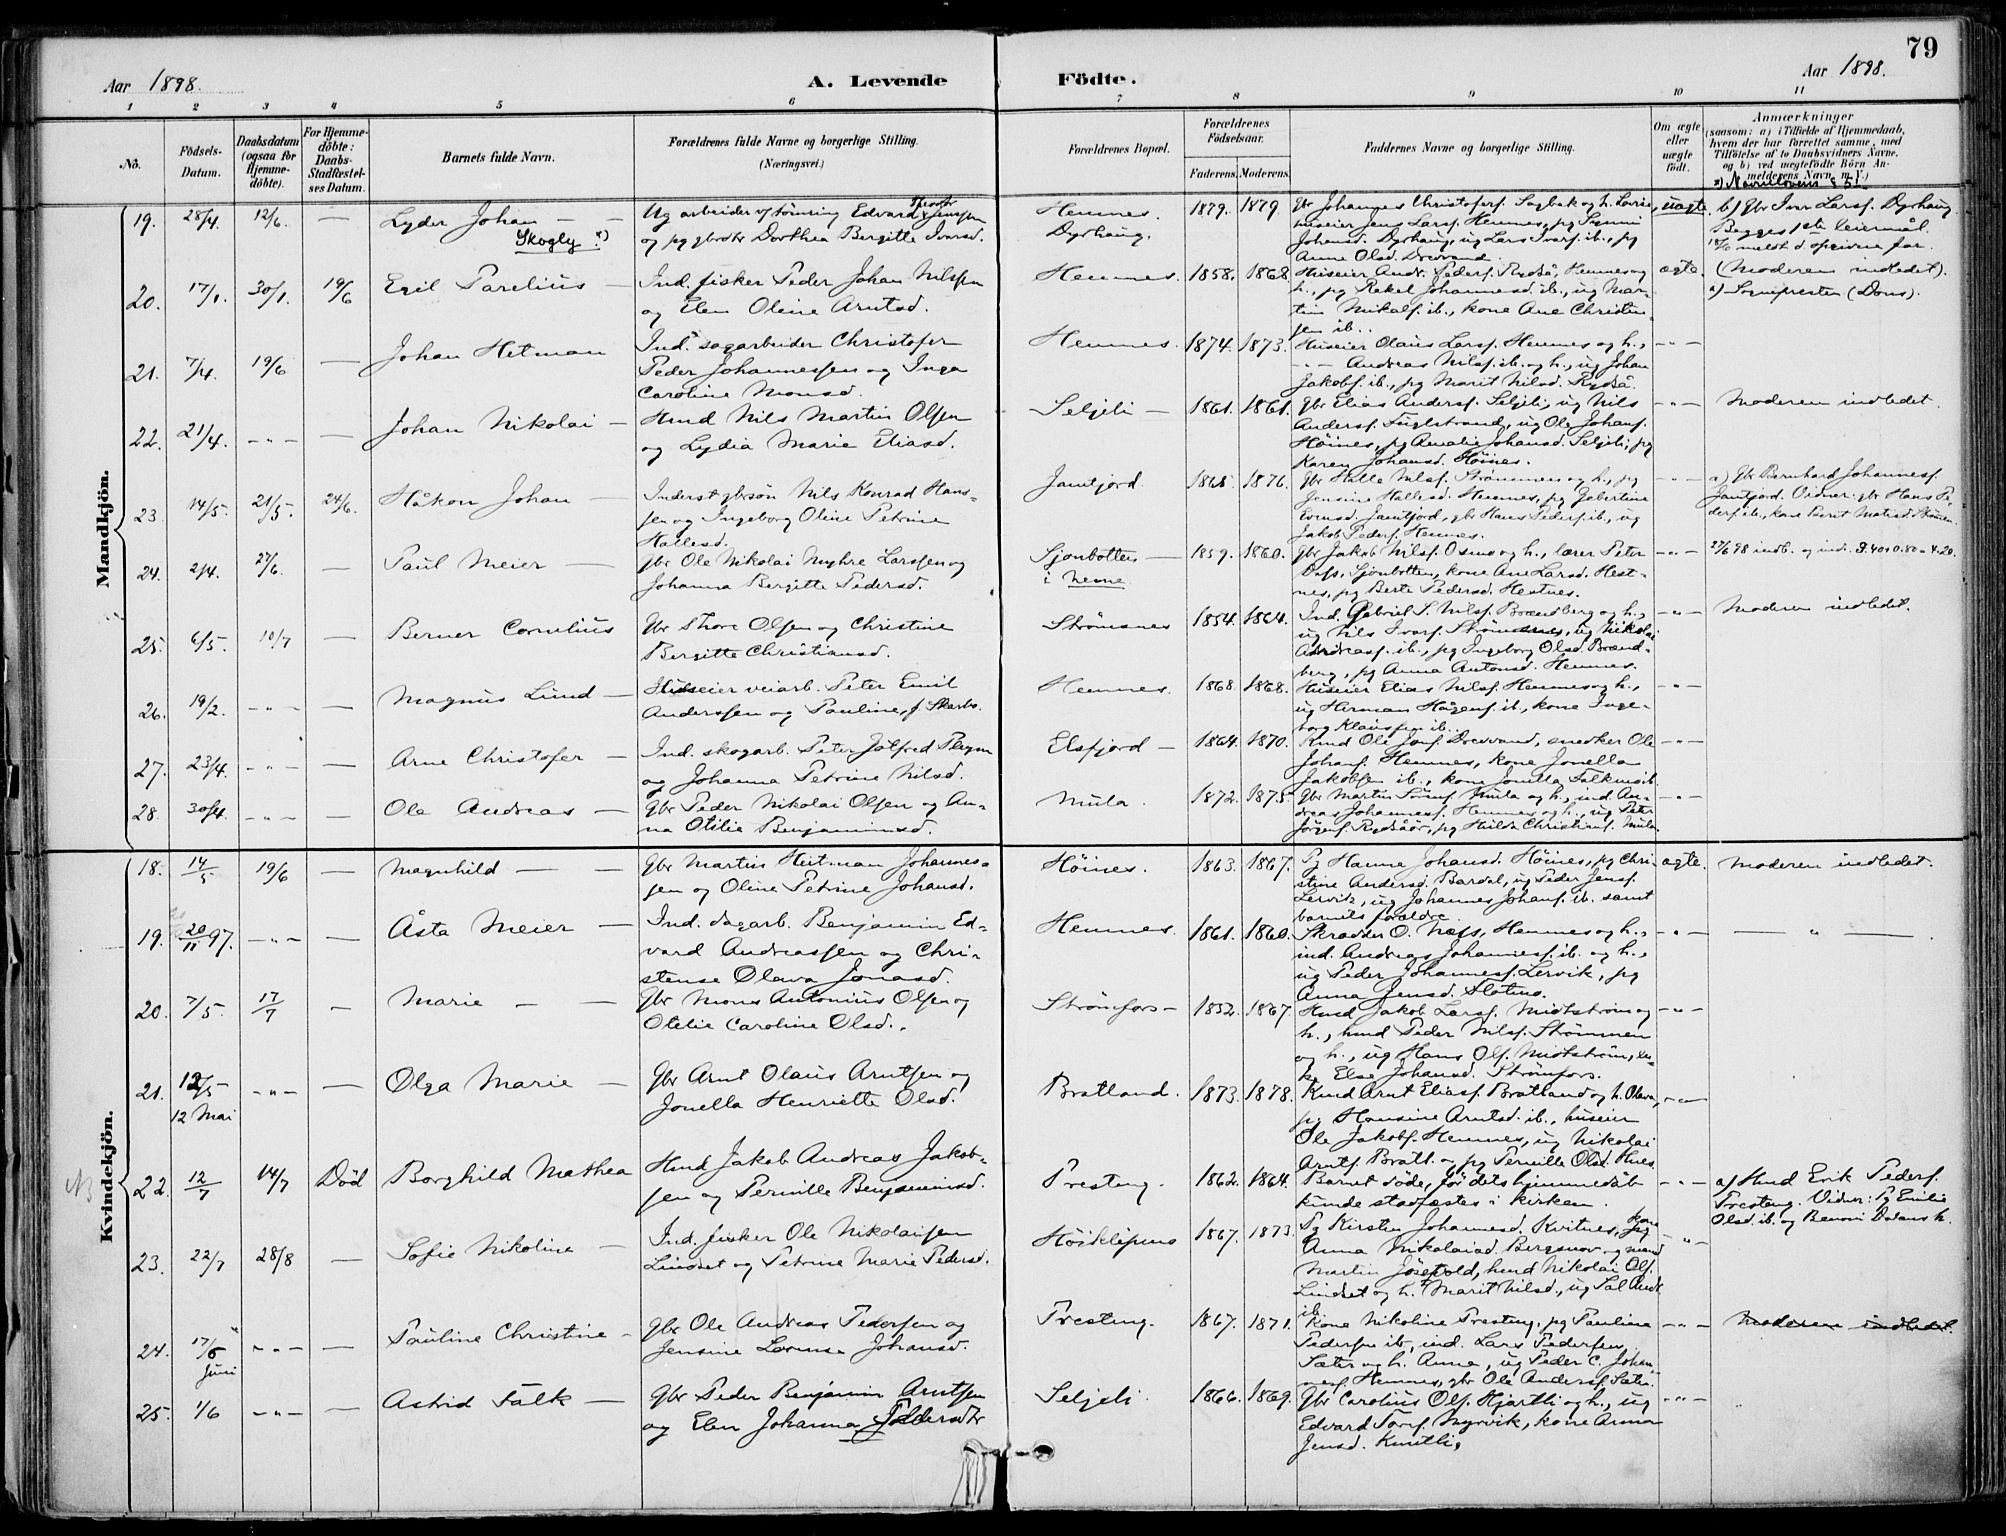 79
Aar 1898.
A. Levende Födte.
Aar 1898.
1 2 3 4 5 6 7 8 9 10 11
No.
Födsels-Datum.
Daabsdatum (ogsaa for Hjemme-döbte).
For Hjemme-döbte: Daabs-Stadfæstel-ses Datum.
Barnets fulde Navn.
Forældrenes fulde Navne og borgerlige Stilling.
(Næringsvei.)
Forældrenes Bopæl.
Forældrenes Födselsaar.
Faderens. Moderens.
Faddernes Navne og borgerlige Stilling.
Om ægte eller uægte födt.
Anmærkninger
(saasom: a) i Tilfælde af Hjemmedaab,
hvem der har forrettet samme, med
Tilföielse af to Daabsvidners Navne,
og b) ved uægtefödte Börn An-
melderens Navn m. V.)
x) Navnelovens § 5!
Mandkjön.
19. 28/4 12/6. — Lyder Johan — —
Skogly x)
Ug arbeider Edvard Jensen
og pg Dorthea Bergitte Ivarsd.
Hemnes.
Dyrhaug.
1879. 1879.
Gbr Johannes Christofers. og h. Lovise,
huseier Jens Larss. Hemnes, pg
Johansd. Dyrhaug, ug Lars Ivars. ib., pg
Anne Olsd. Drevvand.
uægte.
b) Gbr Ivar Larss. Dyrhaug.
Begges 1ste leiermål.
20. 17/1. 30/1. 19/6 Egil Parelius —
Ind. fisker Peder Johan Nilssen
og Elen Oline Arntsd.
Hemnes. 1858. 1868.
Huseier Andr. Peders. Rydså, Hemnes og
h., pg Rekel Johannesd. ib., ug Mar-
tin Mikals. ib., kone Ane Christin-
sen ib.
ægte.
(Moderen indledet).
a) Sognepresten (Dons).
21. 7/4. 19/6 — Johan Hetman
Ind. sagarbeider Christofer
Peder Johannessen og Inga
Caroline Monsd.
Hemnes. 1874. 1873.
Huseier Olaus Larss. Hemnes og h.,
Andreas Nilss. ib. og h., ug Johan
Jakobs. ib., pg Marit Nilsd. Rydså.
— " —
22. 21/4. — " — — Johan Nikolai —
Hmd Nils Martin Olsen
og Lydia Marie Eliasd.
Seljeli — 1861. 1861.
Gbr Elias Anderss. Seljeli, ug Nils
Anderss. Fuglstrand, ug Ole Johans.
Höines, pg Amalie Johansd. Seljeli, pg
Karen Johansd. Höines.
— " — Moderen indledet.
23. 14/5. 21/5. 24/6. Håkon Johan —
Inderst gbrsön Nils Konrad Hans-
sen og Ingeborg Oline Petrine
Hallesd.
Jamtjord 1868 1876.
Gbr Halle Nilss. Strømmen og h., pg
Jensine Hallesd. Hemnes, pg Jebertine
Evensd. Jamtjord, gbr Hans Peders. ib., ug
Jakob Peders. Hemnes.
— " —
a) Gbr Bernhard Johanness.
Jamtjord. Vidner: gbr Hans Pe-
ders. ib., kone Berit
24. 2/4. 27/6. — Paul Meier —
Gbr Ole Nikolai Myhre Larssen og
Johanna Bergitte Pedersd.
Sjonbotten —
i Nesne
1859. 1860.
Gbr Jakob Nilss. Osmo og h., lærer Peter
Dass, Sjonbotten, kone Ane Larsd. Hest-
nes, pg Berte Pedersd. Hestnes.
— " — 27/6 98 indb. og ind.
25. 6/5. 10/7 — Berner Cornelius
Gbr Thore Olsen og Christine
Bergitte Christiansd.
Strömsnes 1854. 1864.
Ind. Gabriel S. Nilss. Brændberg og h.,
ug Nils Ivars. Strömsnes, ug Nikolai
Andreass. ib., pg Ingeborg Olsd. Brænd-
berg, pg Anna Antonsd. Hemnes.
— " — Moderen indledet.
26. 19/2. — " — — Magnus Lund —
Huseier veiarb. Peter Emil
Anderssen og Pauline, f. Skarbo.
Hemnes. 1868. 1868.
Huseier Elias Nilss. Hemnes og h.,
ug Herman Hågens. ib., kone Inge-
borg Klaussen ib.
— " —
27. 23/4. — " — — Arne Christofer —
Ind. skogarb. Peter Jalfred
og Johanna Petrine Nilsd.
Elsfjord — 1864. 1870.
Kmd Ole Jons. Drevvand, snedker Ole
Johans. Hemnes, kone Jonella
Jakobsen ib., kone Jonella Falkmo ib.
— " —
28. 30/4. — " — — Ole Andreas —
Gbr Peder Nikolai Olsen og An-
na Otilie Benjaminsd.
Mula. 1872. 1875.
Gbr Martin Mula og h., ind. An-
dreas Johanness. Hemnes og h., ug Peter
Jörgens. Rydsåör, pg Hulda Christians. Mula.
— " —
Kvindekjön.
18. 14/5 19/6 — Magnhild — —
Gbr Martin Heitman Johannes-
sen og Oline Petrine Johansd.
Höines. 1863. 1867.
Pg Hanna Johansd. Höines, pg Chri-
stine Andersd. Bardal, ug Peder Jenss.
Lervik, ug Johannes Johans. ib. samt
barnets forældre.
ægte. Moderen indledet.
19. 20/11 97. — " — — Åsta Meier —
Ind. dagarb. Benjamin Ed-
vard Andreassen og Chri-
stense Olava Jonasd.
Hemnes. 1861. 1860.
Skrædder O. Næss, Hemnes og h.,
ind. Andreas Johanness. ib. og h.,
ug Peder Johanness. Lervik, pg
Anna Jensd. Slotnes.
— " — — " —
20. 7/5. 17/7 — Marie — —
Gbr Mons Antonius Olsen og
Otelie Caroline Olsd.
Strömfors — 1852. 1867.
Hmd Jakob Larss. Midtström og
h., hmd Peder Nilss. Strömmen
og h., ug Hans Ols. Midtström, en-
ke Else Johansd. Strömfors.
— " —
21. 12/5 — " — — Olga Marie —
12 Mai
Gbr Arnt Olaus Arntsen og
Jonella Henriette Olsd.
Bratland. 1873. 1878.
Kmd Arnt Eliass. Bratland og h. Olava,
pg Hansine Arntsd. ib., huseier
Ole Jakobs. Hemnes, ug Nikolai
Arnts. Bratl. og pg Pernille Olsd. Hnes.
— " —
NB 22. 12/7 14/7 Död Borghild Mathea
Hmd Jakob Andreas Jakob-
sen og Pernille Benjaminsd.
Presteng. 1862. 1864.
Barnet döde, før dets hjemmedåb
kunde stadfæstes i kirken.
— " —
a) Hmd Erik Peders.
Presteng. Vidner: Pg Emilie
Olsd. ib. og Benoni
23. 22/7 28/8 — Sofie Nikoline —
Ind. fisker Ole Nikolaisen
Lindset og Petrine Marie Pedersd.
Höieklepnes 1867. 1873.
Pg Kirsten Johannesd. Kvitnes, kone
Anna Nikolaisd. Bergsnov og mand
Martin hmd Nikolai Ols.
Lindset og h. Marit Nilsd., ug Sal
ib.
— " —
24. 17/6 — " — — Pauline Christine —
Juni
Gbr Ole Andreas Pedersen og
Jensine Lovinse Johansd.
Presteng. 1867. 1871.
Kone Nikoline Presteng, pg Pauline
Pedersen ib., ind. Lars Pedersen
Sæter og h. Anna, ug Peder C. Johan-
ness. Hemnes, gbr Ole Anderss. Sæter.
— " — Moderen indledet.
25. 1/6 — " — — Astrid Falk —
Gbr Peder Benjamin Arntsen
og Elen Johanna
Seljeli. 1866. 1869.
Gbr Carolius Ols. Hjartli og h., ug
Edvard Tors. Myrvik, kone Anna
Jensd. Kmitli.
— " —